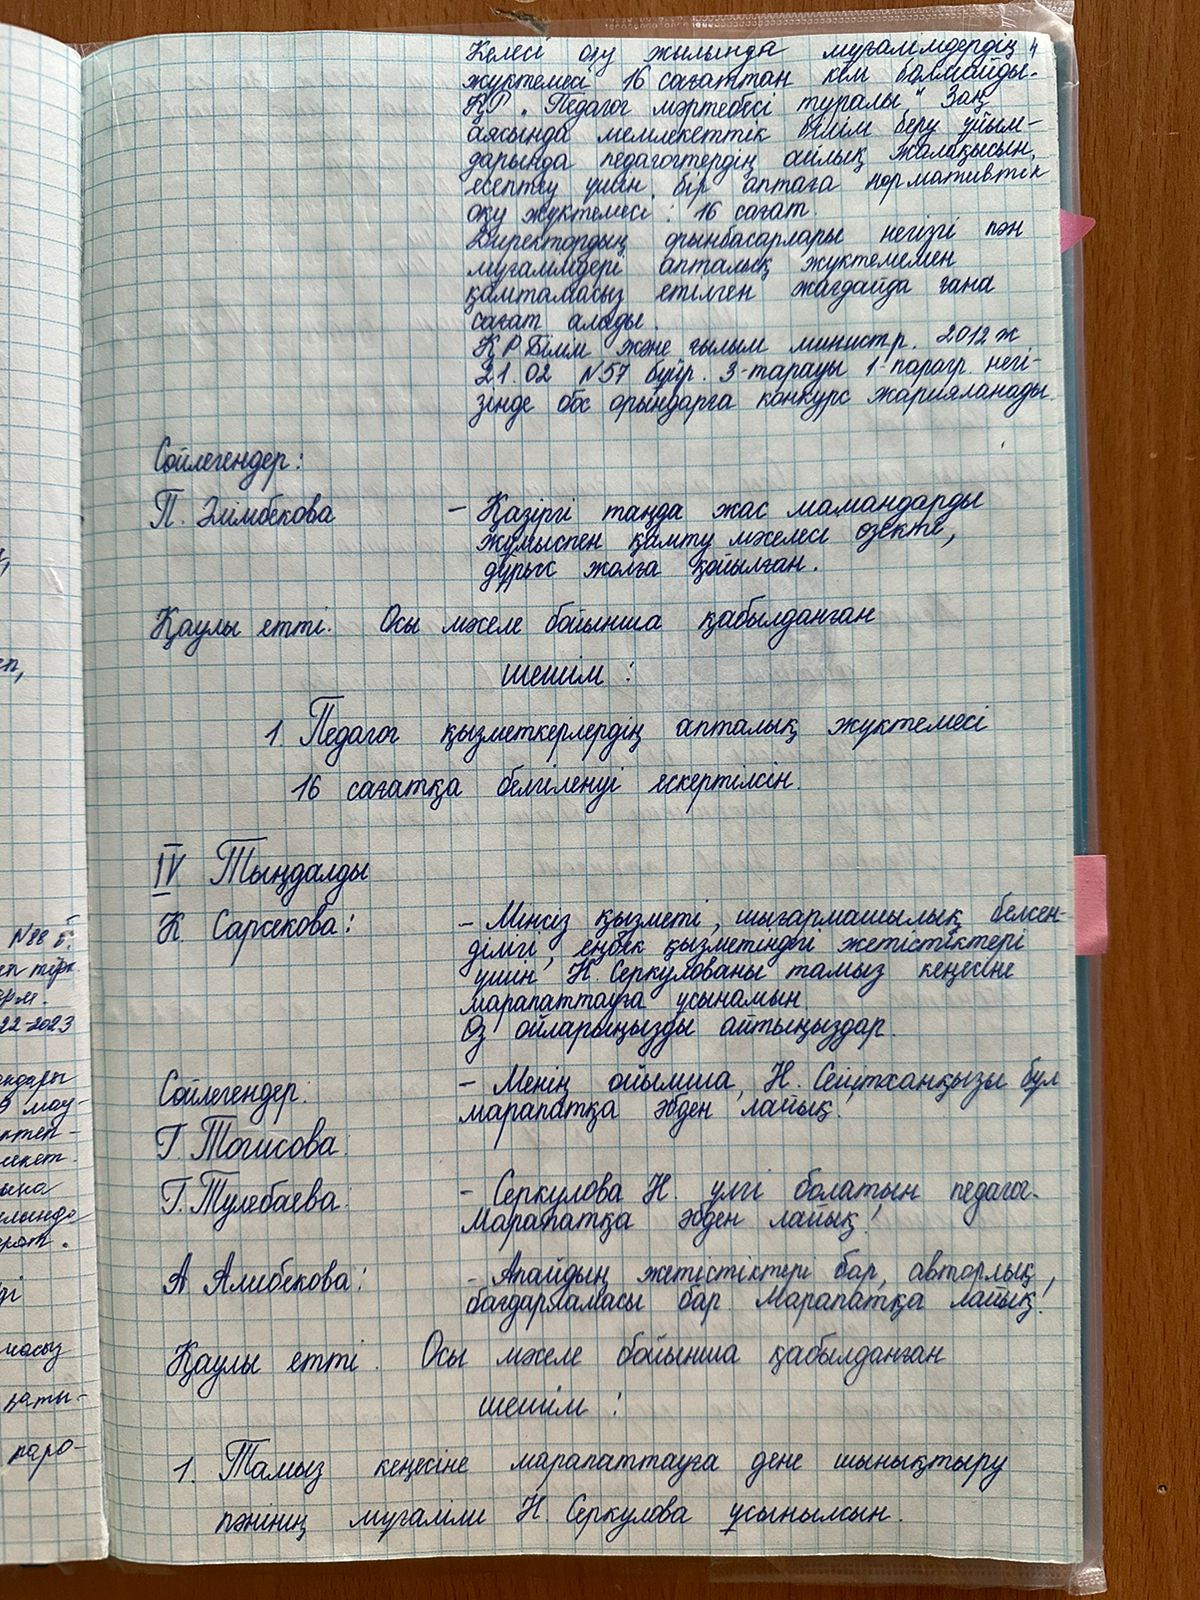 Келесі оқу жылында мұғалімдердің 4
жүктемесі 16 сағаттан кем болмайды.
ҚР „Педагог мәртебесі туралы" Заң
аясында мемлекеттік білім беру ұйым-
дарында педагогтердің айлық жалақысын,
есептеу үшін бір аптаға нормативтік
оқу жүктемесі: 16 сағат.
Директордың орынбасарлары негізгі пән
мұғалімдері апталық жүктемемен
қамтамасыз етілген жағдайда ғана
сағат алады.
ҚР Білім және ғылым министр. 2012 ж
21.02 №57 бұйр. 3-тарауы 1-парагр. негі-
зінде бос орындарға конкурс жарияланады.
Сөйлегендер:
П. Әлімбекова – Қазіргі таңда жас мамандарды
жұмыспен қамту мәселесі өзекті,
дұрыс жолға қойылған.
Қаулы етті. Осы мәселе бойынша қабылданған
шешім:
1. Педагог қызметкерлердің апталық жүктемесі
16 сағатқа белгіленуі ескертілсін.
IV Тыңдалды
К. Сарсекова: – Мінсіз қызметі, шығармашылық белсен-
ділігі, еңбек қызметіндегі жетістіктері
үшін Н. Серкулованы тамыз кеңесіне
марапаттауға ұсынамын
Өз ойларыңызды айтыңыздар.
Сөйлегендер: – Менің ойымша, Н. Сейітханқызы бұл
марапатқа әбден лайық.
Г. Тогисова:
Г. Тулебаева: – Серкулова Н. үлгі болатын педагог.
Марапатқа әбден лайық!
А Алибекова: – Апайдың жетістіктері бар, авторлық
бағдарламасы бар. Марапатқа лайық!
Қаулы етті. Осы мәселе бойынша қабылданған
шешім:
1. Тамыз кеңесіне марапаттауға дене шынықтыру
пәнінің мұғалімі Н. Серкулова ұсынылсын.